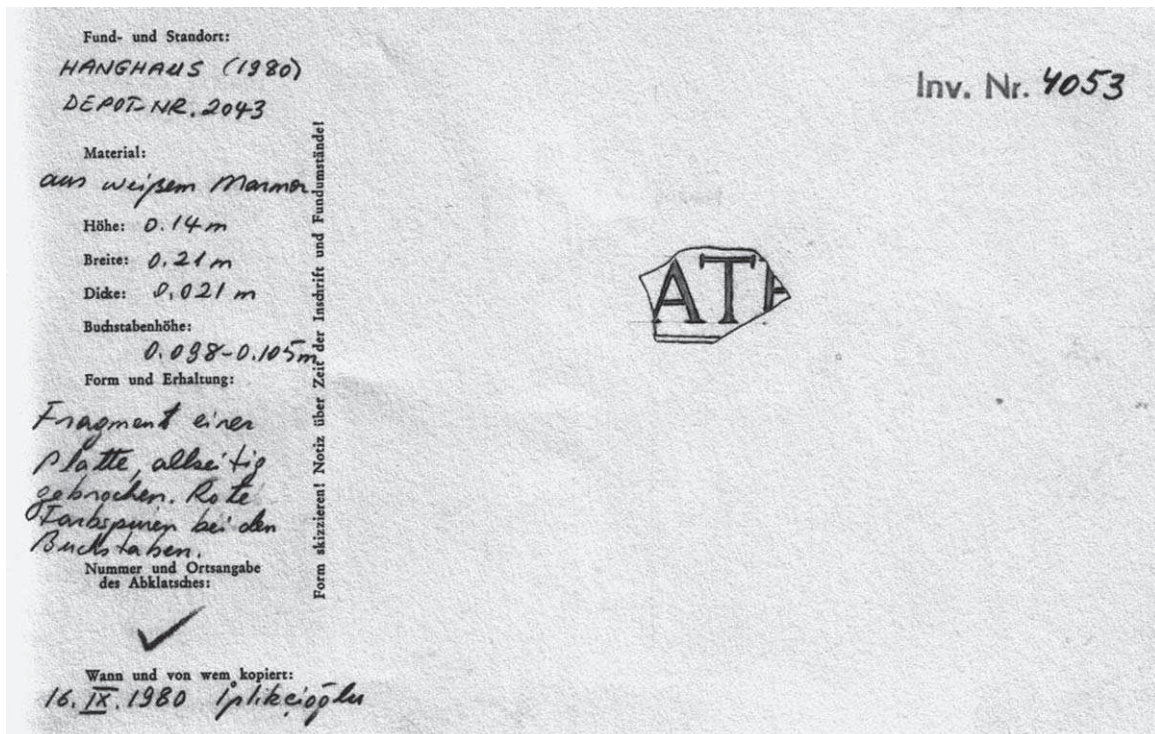 Fund- und Standort:
HANGHAUS (1980)
DEPOT-NR. 2043
Inv. Nr. 4053
Material:
aus weißem Marmor
Höhe: 0.14 m
Breite: 0.21 m
Dicke: 0,021 m
Buchstabenhöhe:
0.098-0.105m
Form und Erhaltung:
Fragment einer
Platte, allseitig
gebrochen. Rote
Farbspuren bei den
Buchstaben.
Nummer und Ortsangabe
des Abklatsches:
Wann und von wem kopiert:
16. IX. 1980 İplikçioğlu
Form skizzieren! Notiz über Zeit der Inschrift und Fundumstände!
AT